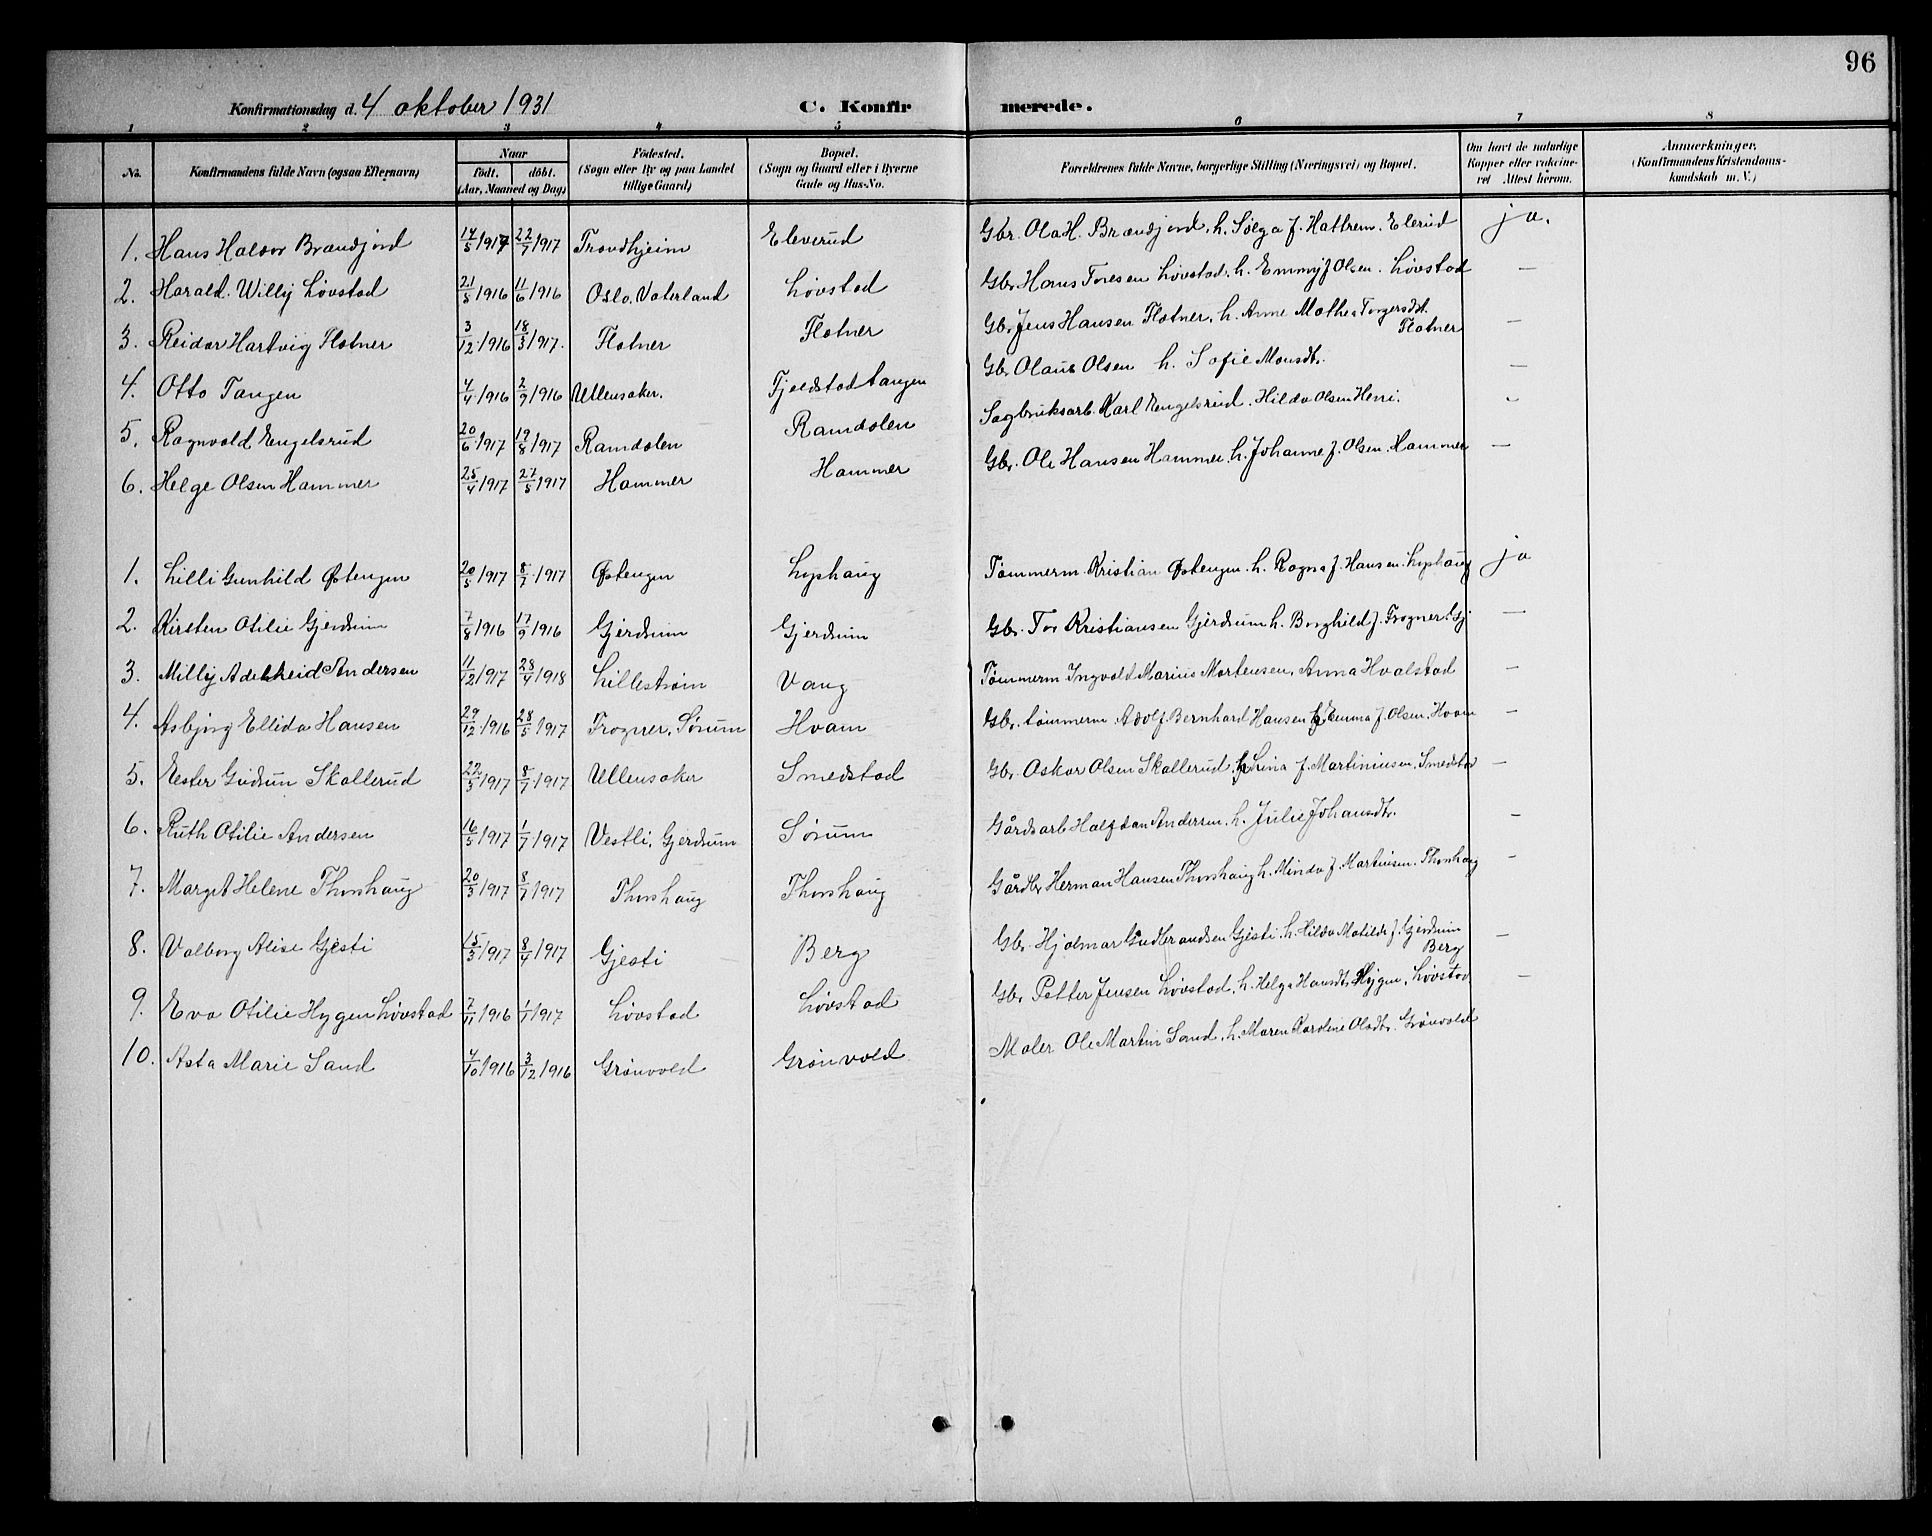 96
Konfirmationsdag d. 4 oktober 1931 C. Konfirmerede.
1 2 3 4 5 6 7 8
No. Konfirmandens fulde Navn (ogsaa Efternavn) Naar födt. döbt. (Aar, Maaned og Dag) Födested. (Sogn eller By og paa Landet tillige Gaard) Bopæl. (Sogn og Gaard eller i Byerne Gade og Hus-No. Forældrenes fulde Navne, borgerlige Stilling (Næringsvei) og Bopæl. Om havt de naturlige Kopper eller vakcineret Attest herom. Anmærkninger. (Konfirmandens Kristendomskundskab m. V.)
1. Hans Halvor Brændjord 14/5 1917 22/7 1917 Trondhjeim Eleverud Gbr. Ola H. Brændjord, h. Solga f. Hattrem. Elerud ja.
2. Harald Willy Løvstad 21/5 1916 11/6 1916 Oslo, Vaterland Løvstad Gbr. Hans Toresen Løvstad, h. Emmy f Olsen. Løvstad —
3. Reidar Hartvig Flatner 3/12 1916 18/3 1917. Flatner Flatner Gbr Jens Hansen Flatner, h. Anne Mathea Torgersdt. Flatner —
4. Otto Tangen 4/4 1916 2/9 1916 Ullensaker. Fjeldstadtangen Gbr. Olaus Olsen h. Sofie Monsdtr. —
5. Ragnvald Engelsrud 20/6 1917 19/8 1917 Ramdalen Ramdalen Sagbruksarb. Karl Engelsrud. Hilda Olsen Heni. -
6. Helge Olsen Hammer 25/4 1917 27/5 1917 Hammer Hammer Gbr. Ole Hansen Hammer, h. Johanne f. Olsen. Hammer —
1. Lilli Gunhild Østengen 20/5 1917 8/7 1917 Østengen Lyshaug Tømmerm. Kristian Østengen. h. Ragna f. Hansen. Lyshaug ja
2. Kirsten Otilie Gjerdrum 7/8 1916 17/9 1916 Gjerdrum Gjerdrum Gbr. Tor Kristiansen Gjerdrum h. Borghild f. Frogner. Gj —
3. Milly Adelheid Andersen 11/12 1917 28/4 1918 Lillestrøm Vang Tømmerm Ingvald Marius Mortensen, Anna Hvalstad —
4. Asbjørg Ellida Hansen 29/12 1916 28/5 1917 Frogner, Sørum Hvam Gbr. tømmerm Adolf Bernhard Hansen h. Emma f. Olsen. Hvam —
5. Ester Gudrun Skallerud 22/3 1917 8/7 1917 Ullensaker Smedstad Gbr. Oskar Olsen Skallerud, h. Lina f. Martiniusen, Smedstad —
6. Ruth Otilie Andersen 16/5 1917 1/7 1917 Vestli, Gjerdrum Sørum Gårdsarb Halfdan Andersen, h. Julie Johansdtr. —
7. Margit Helene Thorshaug 20/3 1917 8/7 1917 Thorshaug Thorshaug Gårdbr Herman Hansen Thorshaug h. Minda f. Martinsen. Thorshaug —
8. Valborg Alise Gjesti 15/3 1917 8/4 1917 Gjesti Berg Gbr. Hjalmar Gudbrandsen Gjesti. h. Hilda Matilde f. Gjerdrum Berg —
9. Eva Otilie Hygen Løvstad 7/11 1916 1/1 1917 Løvstad Løvstad Gbr. Petter Jensen Løvstad, h. Helga Hansdt. Hygen, Løvstad —
10. Asta Marie Sand 4/10 1916 3/12 1916 Grønvold Grønvold Maler Ole Martin Sand, h. Maren Karoline Olsdtr. Grønvold